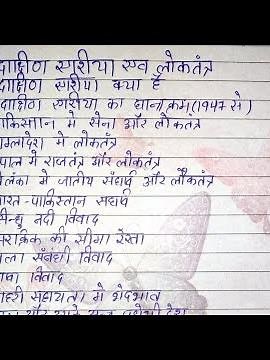 दाक्षिण एशिया एवं लोकतंत्र
दाक्षिण एशिया क्या है
दाक्षिण एशिया का घटना क्रम (1947 से)
पाकिस्तान में सेना और लोकतंत्र
बांग्लादेश में लोकतंत्र
नेपाल में राजतंत्र और लोकतंत्र
श्रीलंका में जातीय संघर्ष और लोकतंत्र
भारत-पाकिस्तान संघर्ष
सिन्धु नदी विवाद
की सीमा रेखा
संबंधी विवाद
विवाद
सहायता में भेदभाव